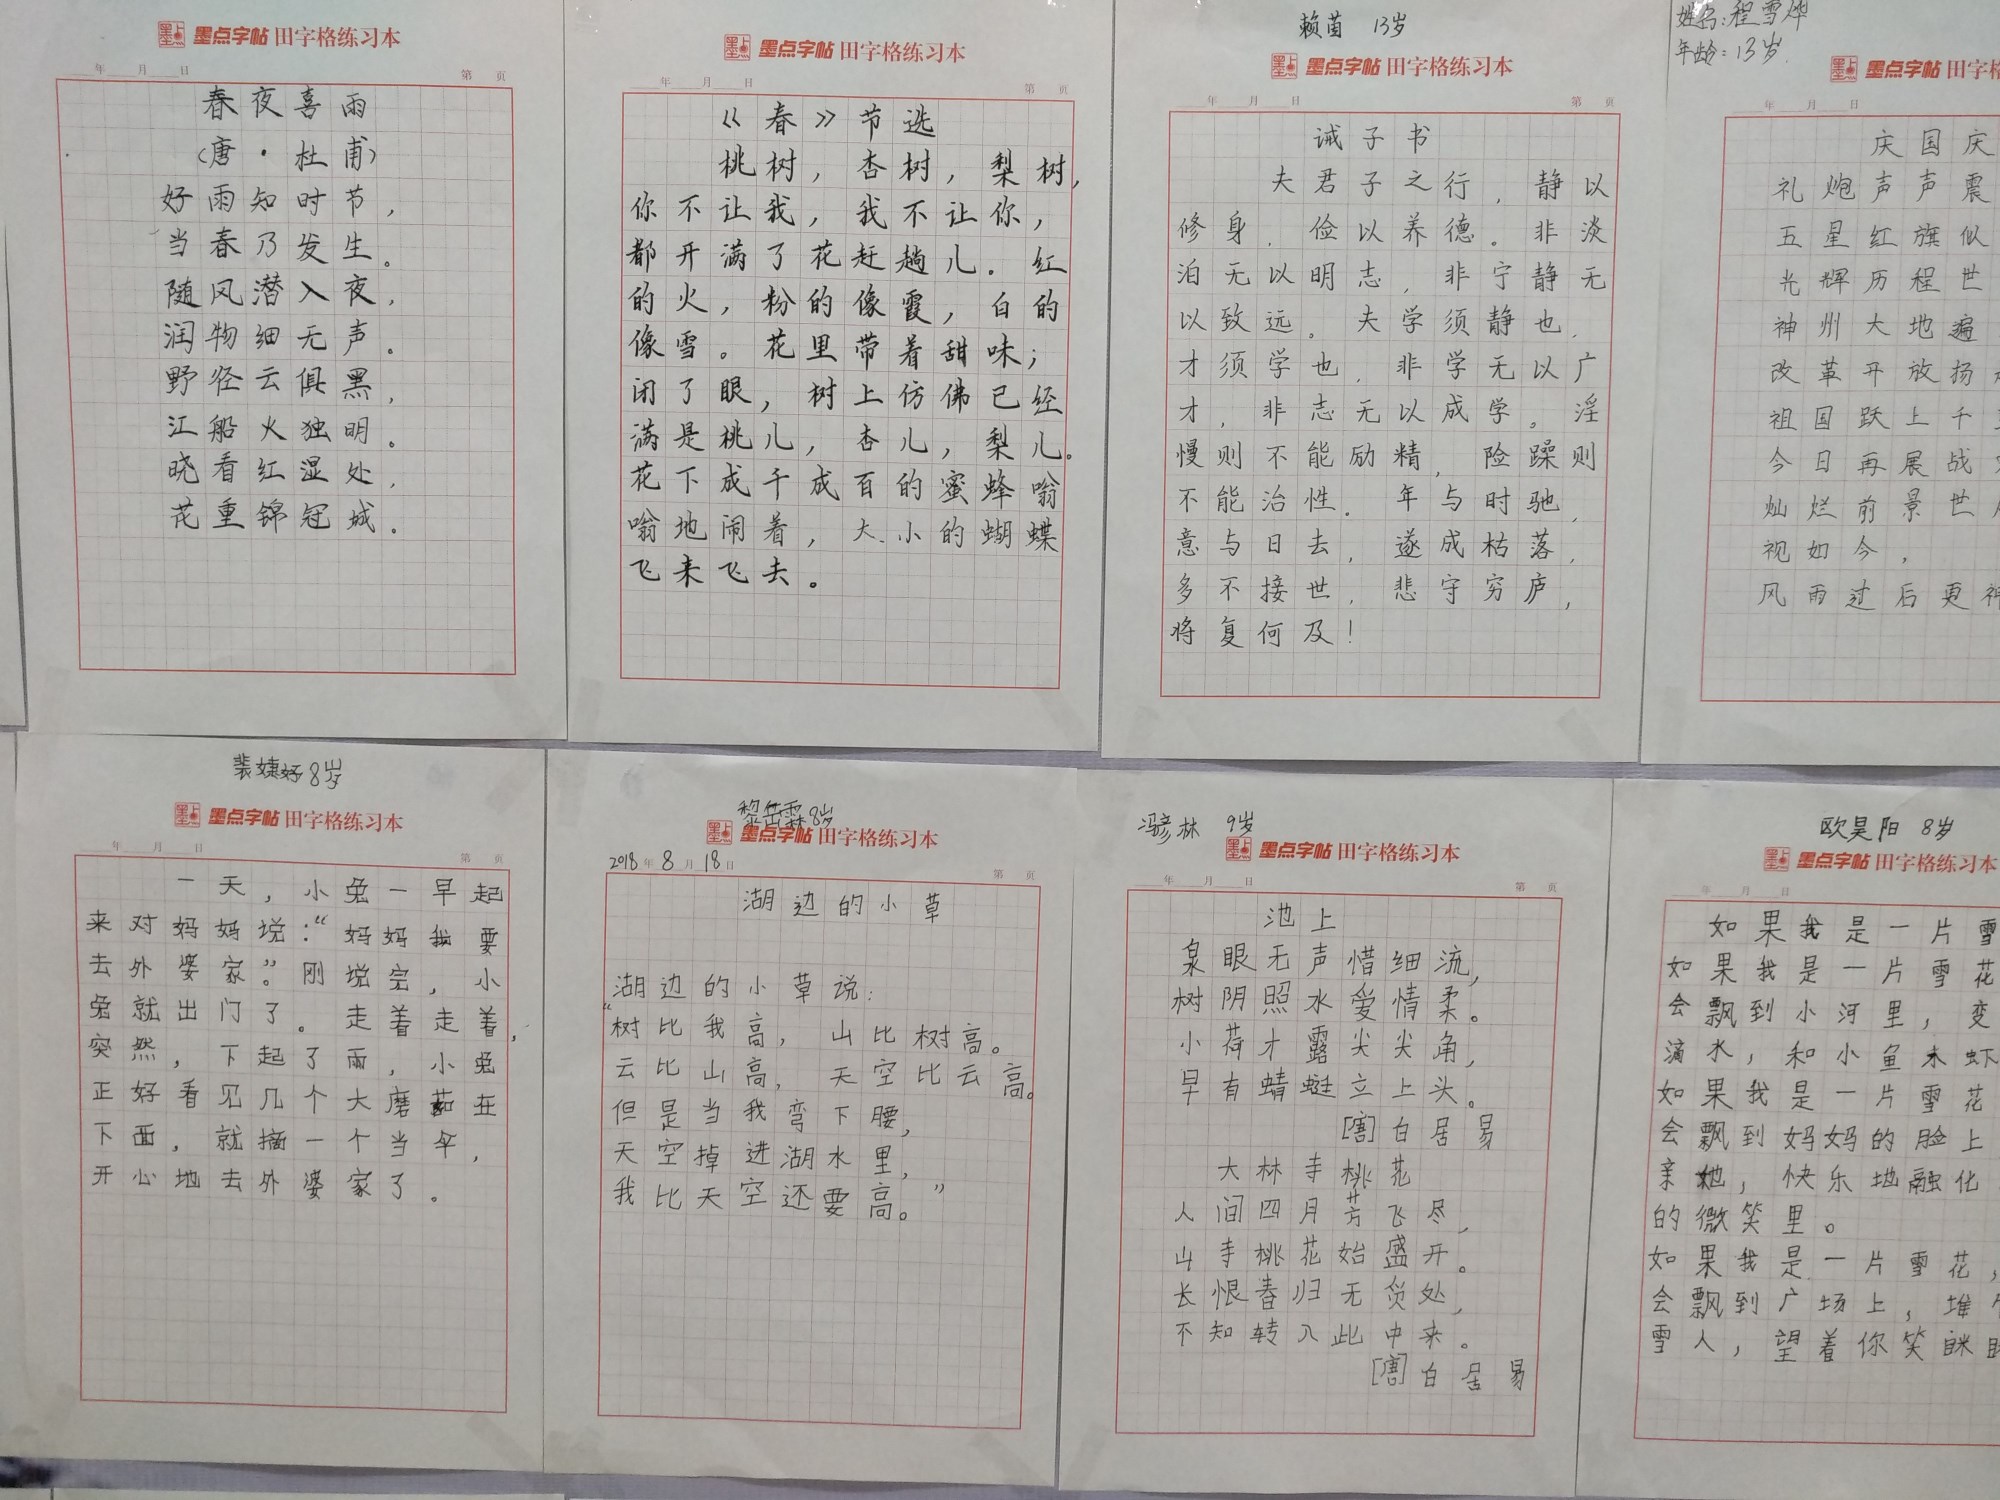 墨点字帖 田字格练习本
年 月 日 第 页
春夜喜雨
（唐·杜甫）
好雨知时节，
当春乃发生。
随风潜入夜，
润物细无声。
野径云俱黑，
江船火独明。
晓看红湿处，
花重锦冠城。
墨点字帖 田字格练习本
年 月 日 第 页
《春》节选
桃树，杏树，梨树，
你不让我，我不让你，
都开满了花赶趟儿．红
的火，粉的像霞，白的
像雪。花里带着甜味；
闭了眼，树上仿佛已经
满是桃儿，杏儿，梨儿。
花下成千成百的蜜蜂嗡
嗡地闹着，大、小的蝴蝶
飞来飞去。
赖茵 13岁
墨点字帖 田字格练习本
年 月 日 第 页
诫子书
夫君子之行，静以
修身．俭以养德。非淡
泊无以明志，非宁静无
以致远。夫学须静也，
才须学也，非学无以广
才，非志无以成学。淫
慢则不能励精，险躁则
不能治性．年与时驰，
意与日去，遂成枯落，
多不接世，悲守穷庐，
将复何及！
姓名：程雪烨
年龄：13岁
墨点字帖 田字格
年 月 日
庆国庆
礼炮声声震
五星红旗似
光辉历程世
神州大地遍
改革开放扬
祖国跃上千
今日再展战
灿烂前景世
视如今，
风雨过后更神
裴婕妤8岁
墨点字帖 田字格练习本
年 月 日 第 页
一天，小兔一早起
来对妈妈说：“妈妈我要
去外婆家”。刚说完，小
兔就出门了。走着走着，
突然，下起了雨，小兔
正好看见几个大磨菇在
下面，就摘一个当伞，
开心地去外婆家了。
黎岳霖8岁
墨点字帖 田字格练习本
2018年8月18日 第 页
湖边的小草
湖边的小草说：
“树比我高，山比树高。
云比山高，天空比云高。
但是当我弯下腰，
天空掉进湖水里，
我比天空还要高。”
冯彦林 9岁
墨点字帖 田字格练习本
年 月 日 第 页
池上
泉眼无声惜细流，
树阴照水爱情柔。
小荷才露尖尖角，
早有蜻蜓立上头。
［唐］白居易
大林寺桃花
人间四月芳飞尽，
山寺桃花始盛开。
长恨春归无觅处，
不知转入此中来。
［唐］白居易
欧昊阳 8岁
墨点字帖 田字格练习本
年 月 日
如果我是一片雪
如果我是一片雪花
会飘到小河里，变
滴水，和小鱼 虾
如果我是一片雪花
会飘到妈妈的脸上
亲她，快乐地融化
的微笑里。
如果我是一片雪花，
会飘到广场上，堆
雪人，望着你笑眯